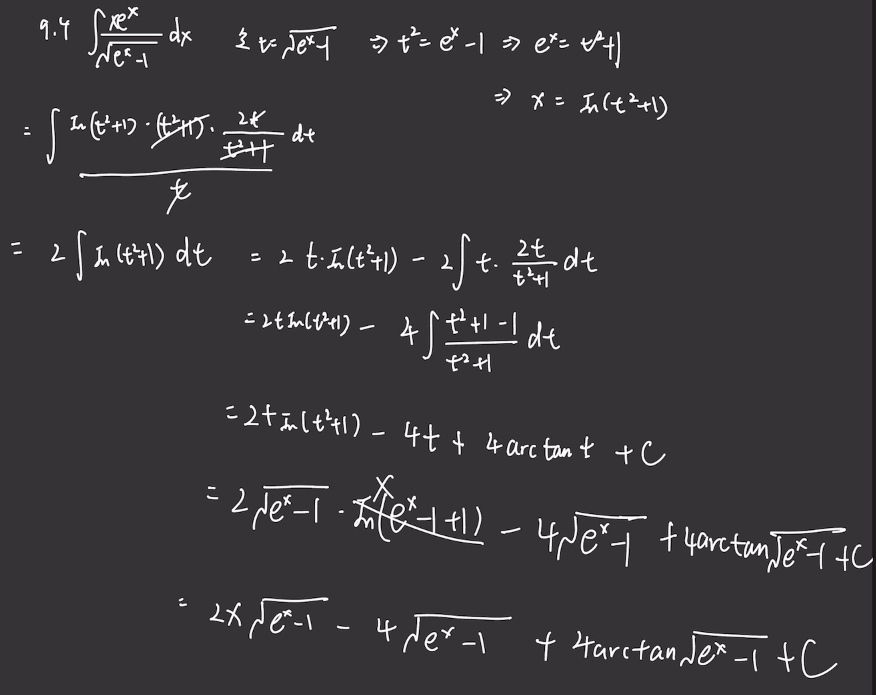 9.4 ∫ xeˣ/√(eˣ-1) dx 令 t=√(eˣ-1) ⇒ t²=eˣ-1 ⇒ eˣ=t²+1
⇒ x = ln(t²+1)
= ∫ (ln(t²+1)·(t²+1)·2t/(t²+1))/t dt
= 2∫ ln(t²+1) dt = 2t·ln(t²+1) - 2∫ t·2t/(t²+1) dt
= 2t ln(t²+1) - 4∫ (t²+1-1)/(t²+1) dt
= 2t ln(t²+1) - 4t + 4arctan t + C
= 2√(eˣ-1) · ln(eˣ-1+1) x - 4√(eˣ-1) + 4arctan√(eˣ-1) + C
= 2x√(eˣ-1) - 4√(eˣ-1) + 4arctan√(eˣ-1) + C